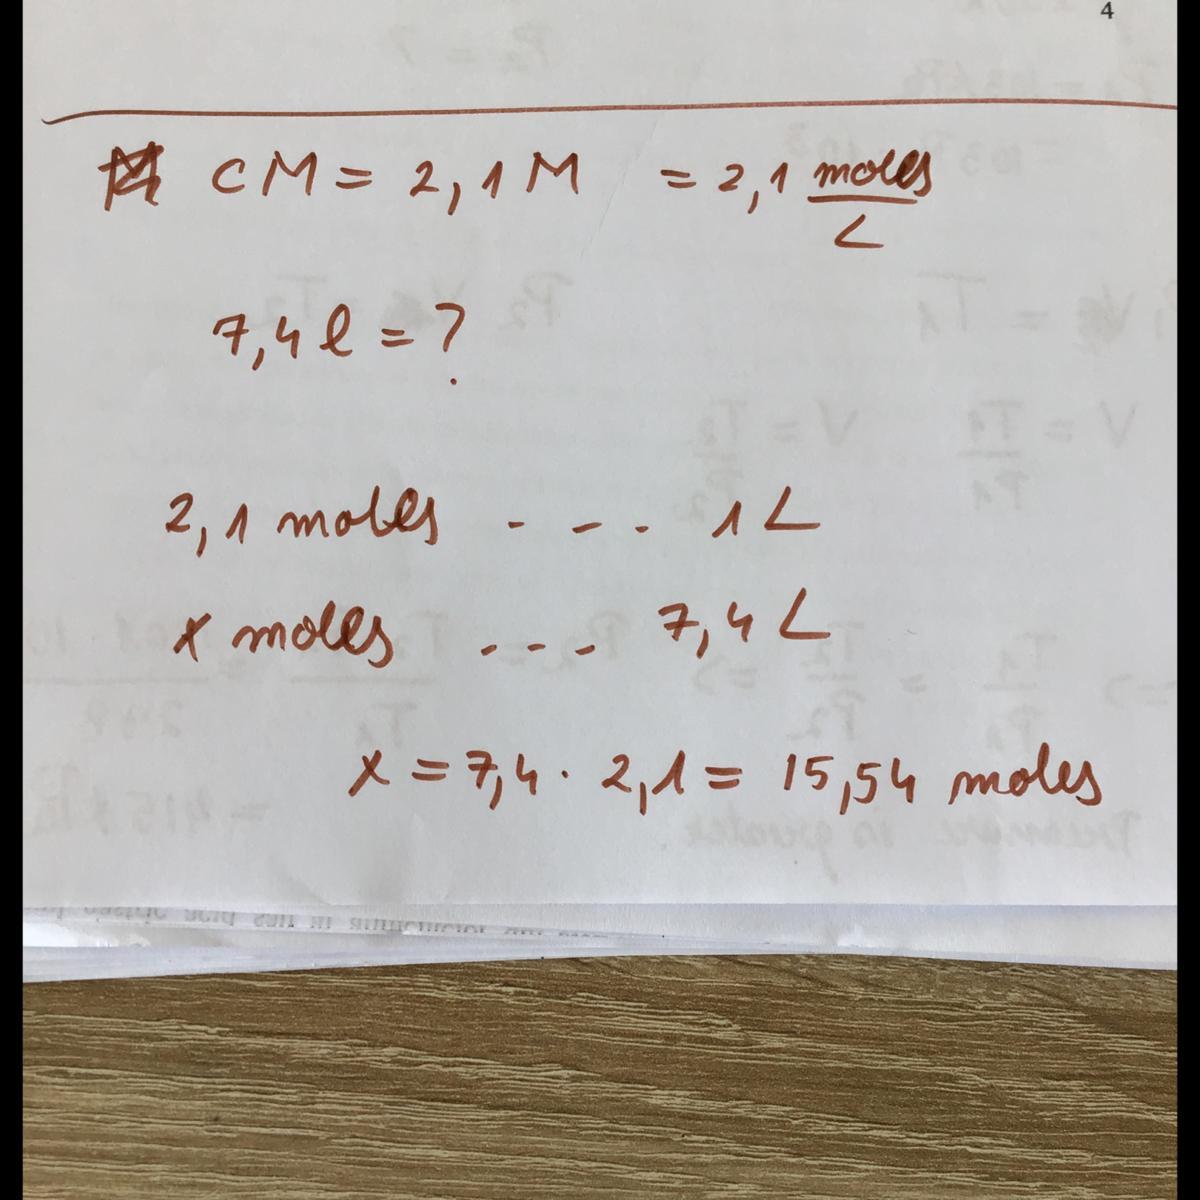 4
CM = 2,1 M = 2,1 moles/L
7,4 l = ?
2,1 moles - - - . 1 L
x moles . - - . 7,4 L
x = 7,4 . 2,1 = 15,54 moles